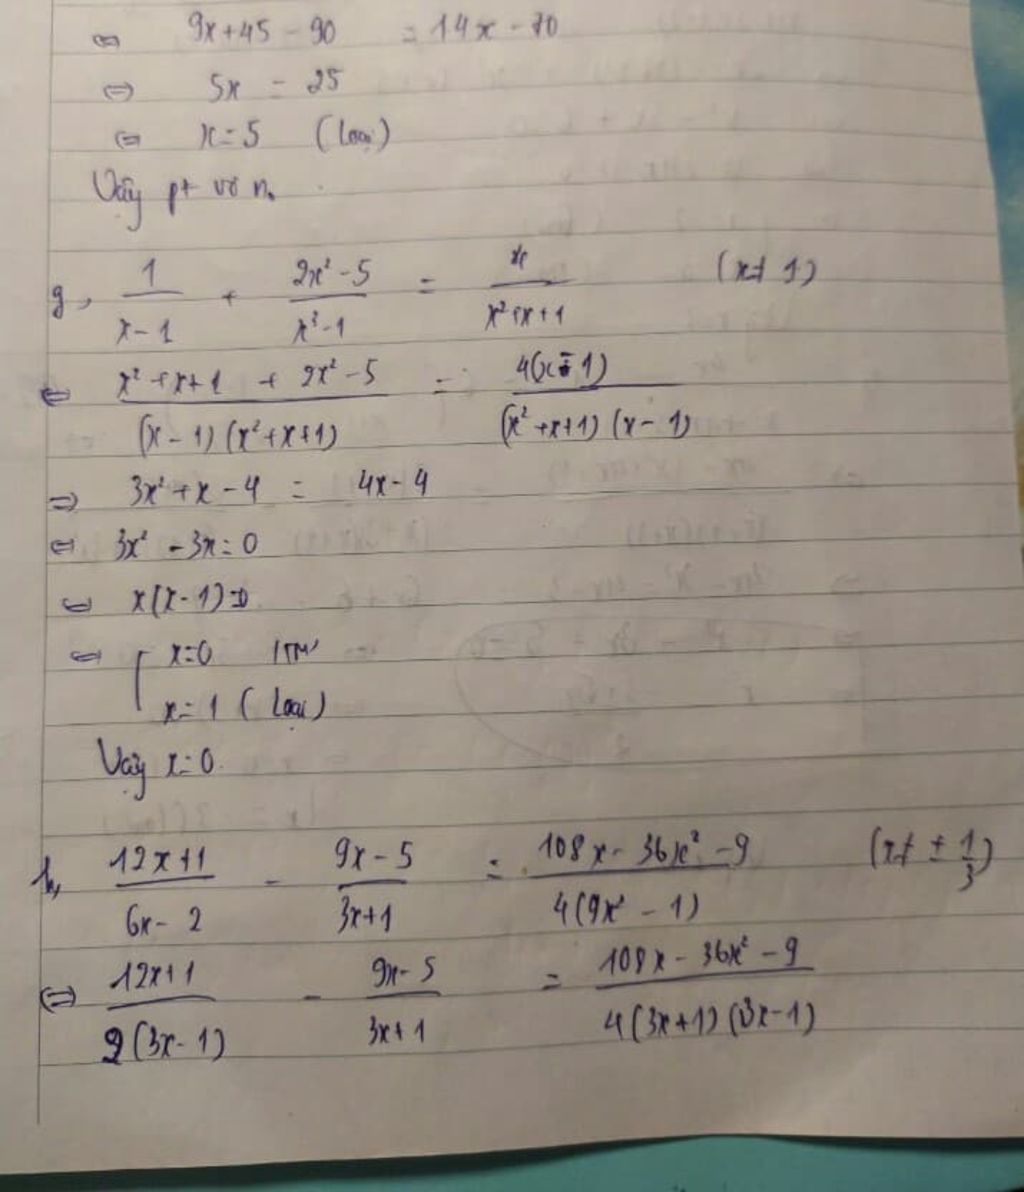 ⇔ 9x+45 - 90 = 14x - 70
⇔ 5x = 25
⇔ x = 5 (loại)
Vậy pt vô n.
g, 1/(x-1) + (2x²-5)/(x³-1) = 4/(x²+x+1) (x≠1)
⇔ (x²+x+1 + 2x²-5)/((x-1)(x²+x+1)) = 4(x-1)/((x²+x+1)(x-1))
⇒ 3x²+x-4 = 4x-4
⇔ 3x² - 3x = 0
⇔ x(x-1)=0
⇔ [ x=0 (TM)
x=1 (Loại)
Vậy x=0.
h, (12x+1)/(6x-2) - (9x-5)/(3x+1) = (108x-36x²-9)/(4(9x²-1)) (x≠ ± 1/3)
⇔ (12x+1)/(2(3x-1)) - (9x-5)/(3x+1) = (108x-36x²-9)/(4(3x+1)(3x-1))